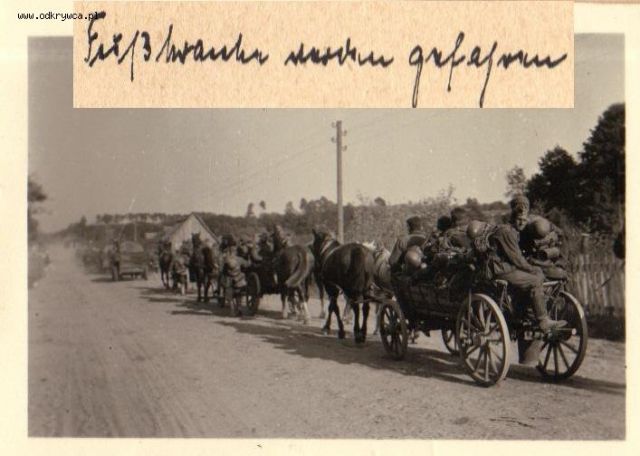 www.odkrywca.pl
Fußkranke werden gefahren